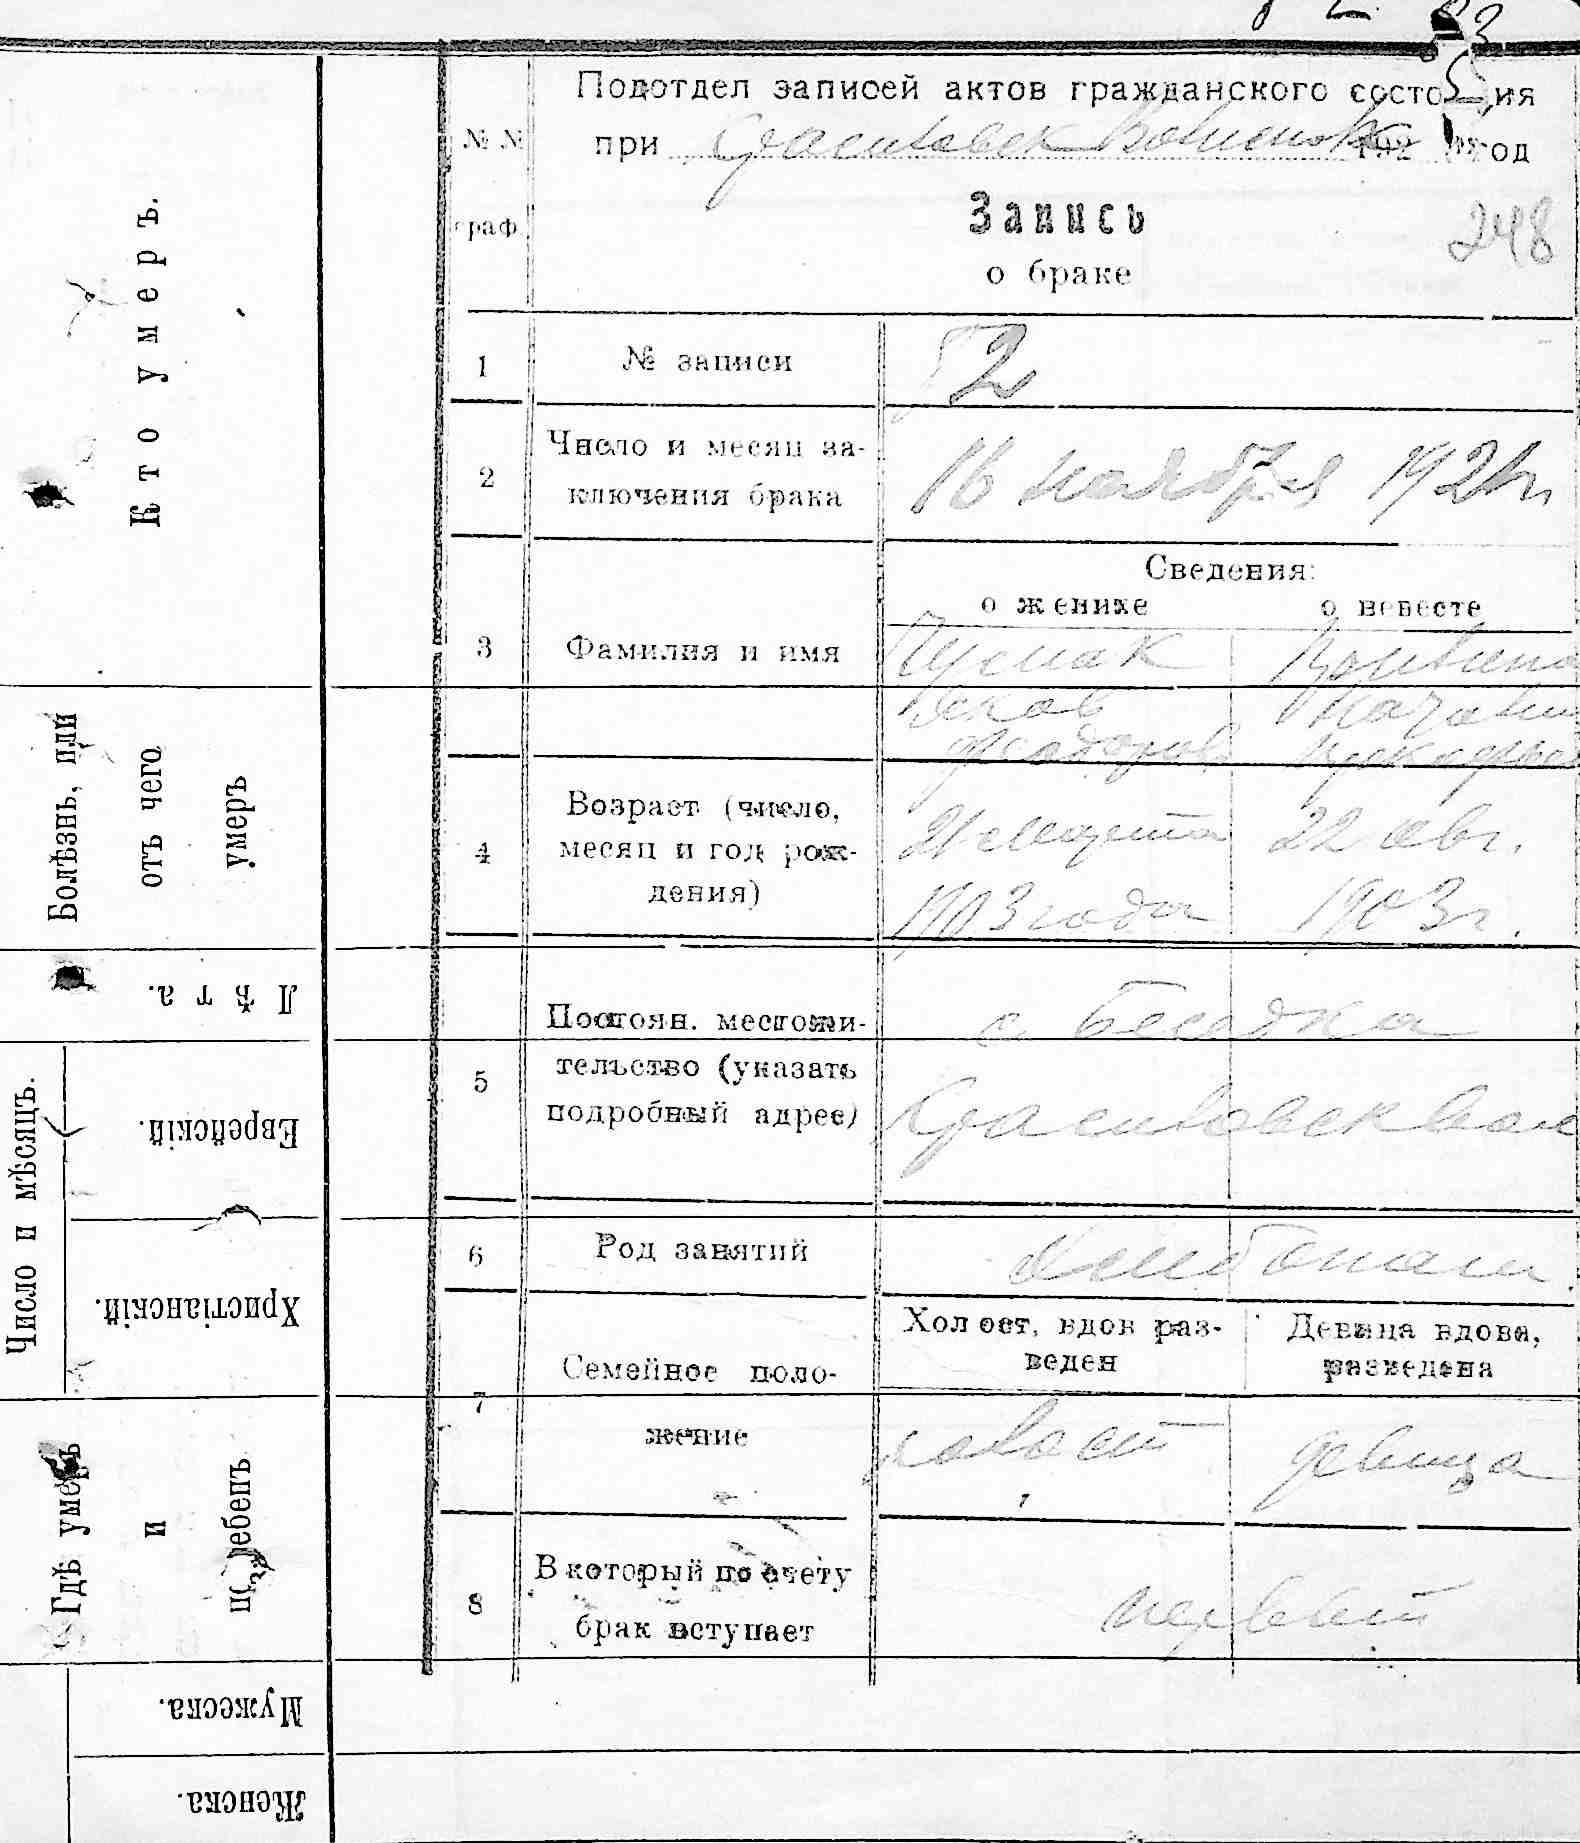 Подотдел записей актов гражданского состояния
№ №
при 192 год
граф
Запись
248
о браке
1
№ записи
2
2
Число и месяц за-
ключения брака
16 ноября 1921 г.
Сведения:
о женихе
о невесте
3
Фамилия и имя
Чумак
Яков
4
Возраст (число,
месяц и год рож-
дения)
21 марта
1903 года
22 авг.
1903 г.
5
Постоян. местожи-
тельство (указать
подробный адрес)
с. Беседка
6
Род занятий
Хлебопаш.
7
Семейное поло-
жение
Холост, вдов раз-
веден
Девица вдова,
разведена
холост
девица
8
В который по счету
брак вступает
первый
Кто умеръ.
Болѣзнь, или
отъ чего
умеръ
Лѣта.
Число и мѣсяцъ.
Еврейскій.
Христіанскій.
Гдѣ умеръ
и
погребенъ
Мужеска.
Женска.